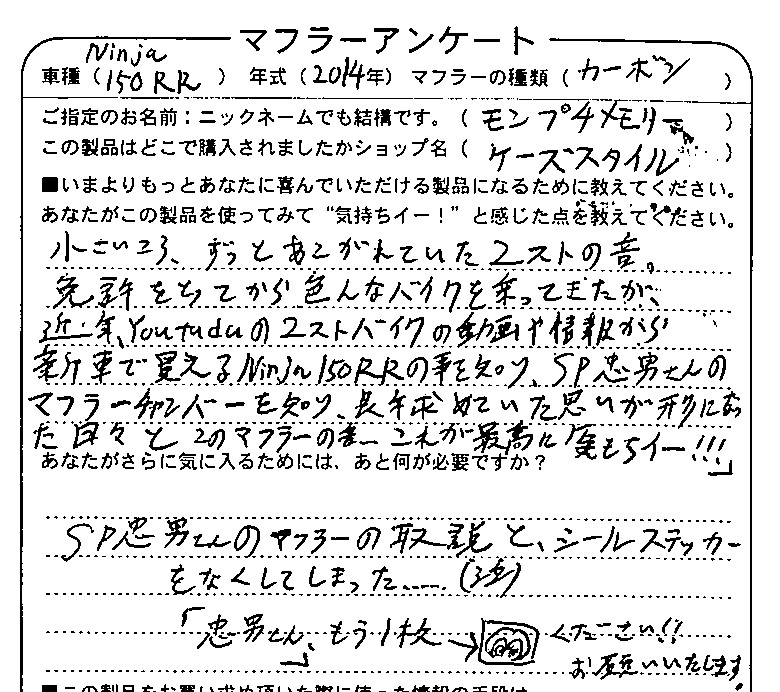 マフラーアンケート
車種（Ninja 150RR） 年式（2014年） マフラーの種類（カーボン）
ご指定のお名前：ニックネームでも結構です。（モンプチメモリー）
この製品はどこで購入されましたかショップ名（ケーズスタイル）
■いまよりもっとあなたに喜んでいただける製品になるために教えてください。
あなたがこの製品を使ってみて“気持ちイー！”と感じた点を教えてください。
小さいころ、ずっとあこがれていた2ストの音。
免許をとってから色んなバイクを乗ってきたが、
近年、Youtuduの2ストバイクの動画や情報から
新車で買えるNinja150RRの事を知り、SP忠男さんの
マフラーチャンバーを知り、長年求めていた思いが形になっ
た日々とこのマフラーの音…これが最高に「気もちイー!!!」
あなたがさらに気に入るためには、あと何が必要ですか？
SP忠男さんのマフラーの取説と、シールステッカー
をなくしてしまった……（泣）
「忠男さん、もう1枚→くださーい!!」
お願いいたします。
■この製品をお買い求め頂いた際に使った情報の手段は